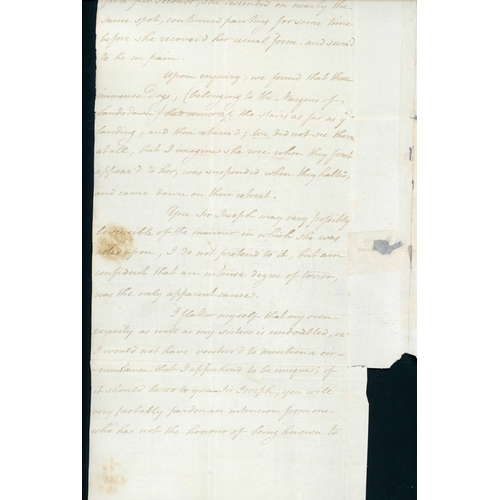 same spot, continued panting for some time
before she recover'd her usual form, and seem'd
to be in pain.
Upon enquiry, we found that three
immense Dogs, (belonging to the Marquis of
Landsdown) had come up the stairs as far as ye
landing, and then return'd; we did not see them
at all, but I imagine she rose when they first
appear'd to her, was suspended when they halted,
and came down on their retreat.
You Sir Joseph may very possibly
be sensible of the manner in which she was
acted upon, I do not pretend to it, but am
confident that an intense degree of terror,
was the only apparent cause.
I flatter myself that my own
veracity as well as my sisters is undoubted, or
I would not have ventur'd to mention a cir-
cumstance that I apprehend to be unique; if
it should be so to you Sir Joseph, you will
very probably pardon an intrusion from one
who has not the honour of being known to